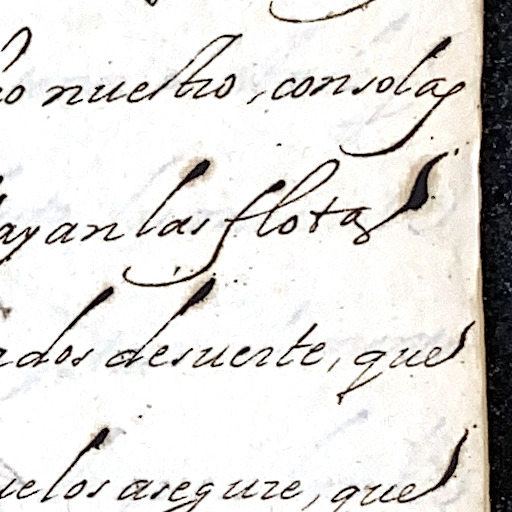 nuestro, con solas
ayan las flotas
ados desuerte, que
uelos asegure, que